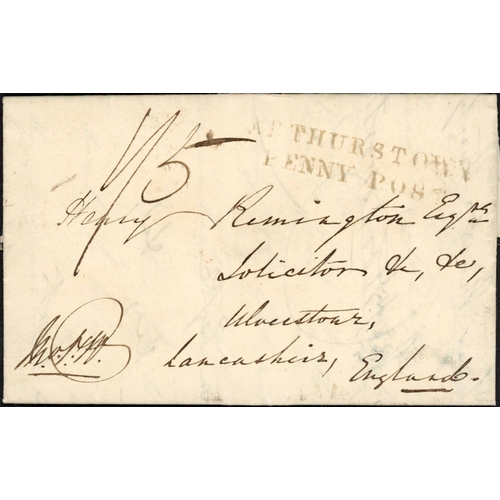 1/5
ARTHURSTOWN
PENNY POST
Henry Remington Esqre
Solicitor &c, &c,
Ulverstour,
Lancashire,
England.